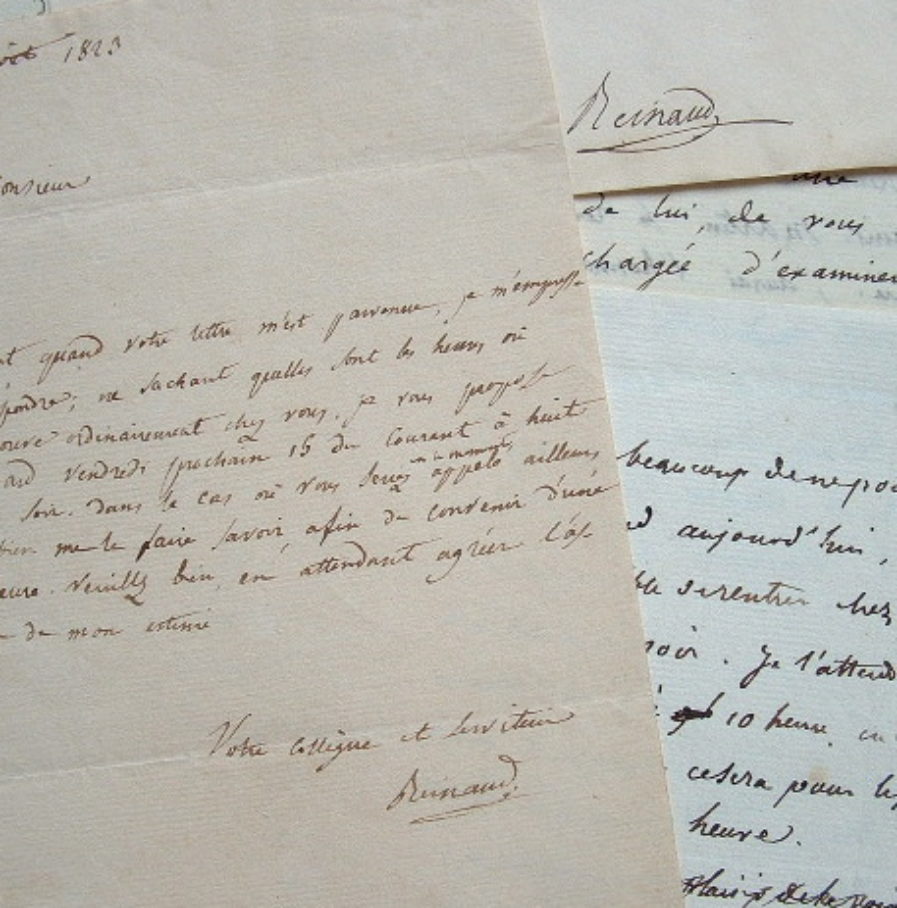 1823
onsieur
nt quand votre lettre m'est parvenue, je m'empresse
pondre; ne sachant quelles sont les heures où
ouve ordinairement chez vous, je vous propose
ard vendredi prochain 15 du courant à huit
soir. Dans le cas où vous seriez en ce moment appelé ailleurs
bien me le faire savoir, afin de convenir d'une
eure. Veuillez bien, en attendant agréer l'as-
e de mon estime
Votre collègue et serviteur
Reinaud
Reinaud
une
de lui, de vous
chargée d'examiner
beaucoup de ne po
aujourd'hui,
de rentrer chez
soir. Je l'attend
10 heure, en
ce sera pour le
heure.